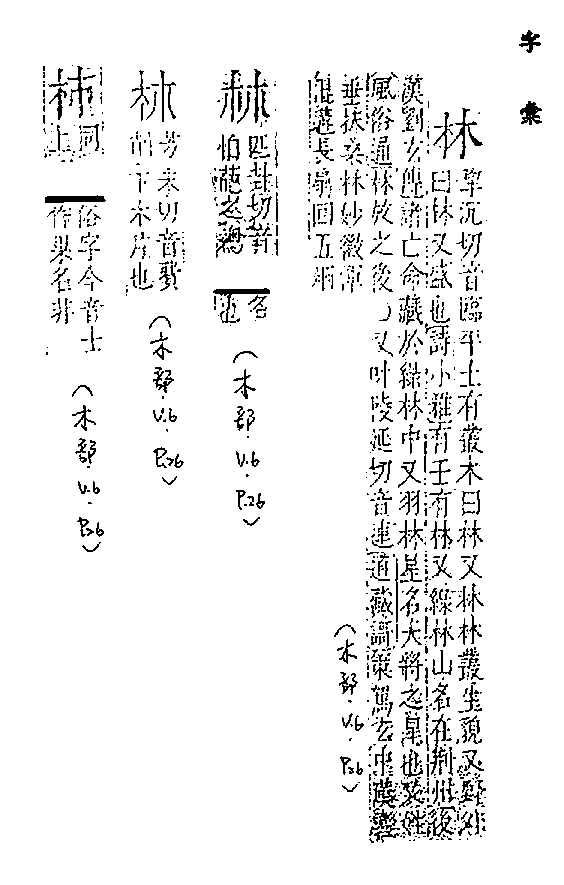 字彙
林
犂沉切音臨平土有叢木曰林又林林叢生貌又野外
曰林又盛也詩小雅有壬有林又綠林山名在荆州後
漢劉玄匿諸亡命藏於綠林中又羽林星名大將之星也又姓
風俗通林放之後○又叶陵延切音連道藏謌策駕玄中漢
垂扶桑林妙徽渾
混蓬長扇回五烟
(木部.V.6.P.26)
𣏟
匹卦切音
葩之總
名
也
(木部.V.6.P.26)
芳未切音費
削下木片也
(木部.V.6.P.26)
同
上
俗字今音士
作果名非
(木部.V.6.P.26)